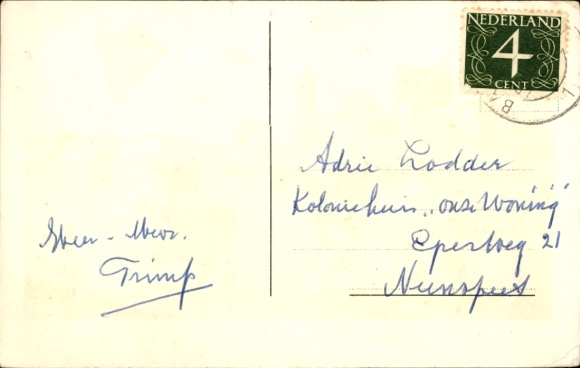 NEDERLAND
4
CENT
Adrie Lodder
Koloniehuis „onze Woning"
Eperweg 21
Nunspeet
Heer - Mevr.
Trimp